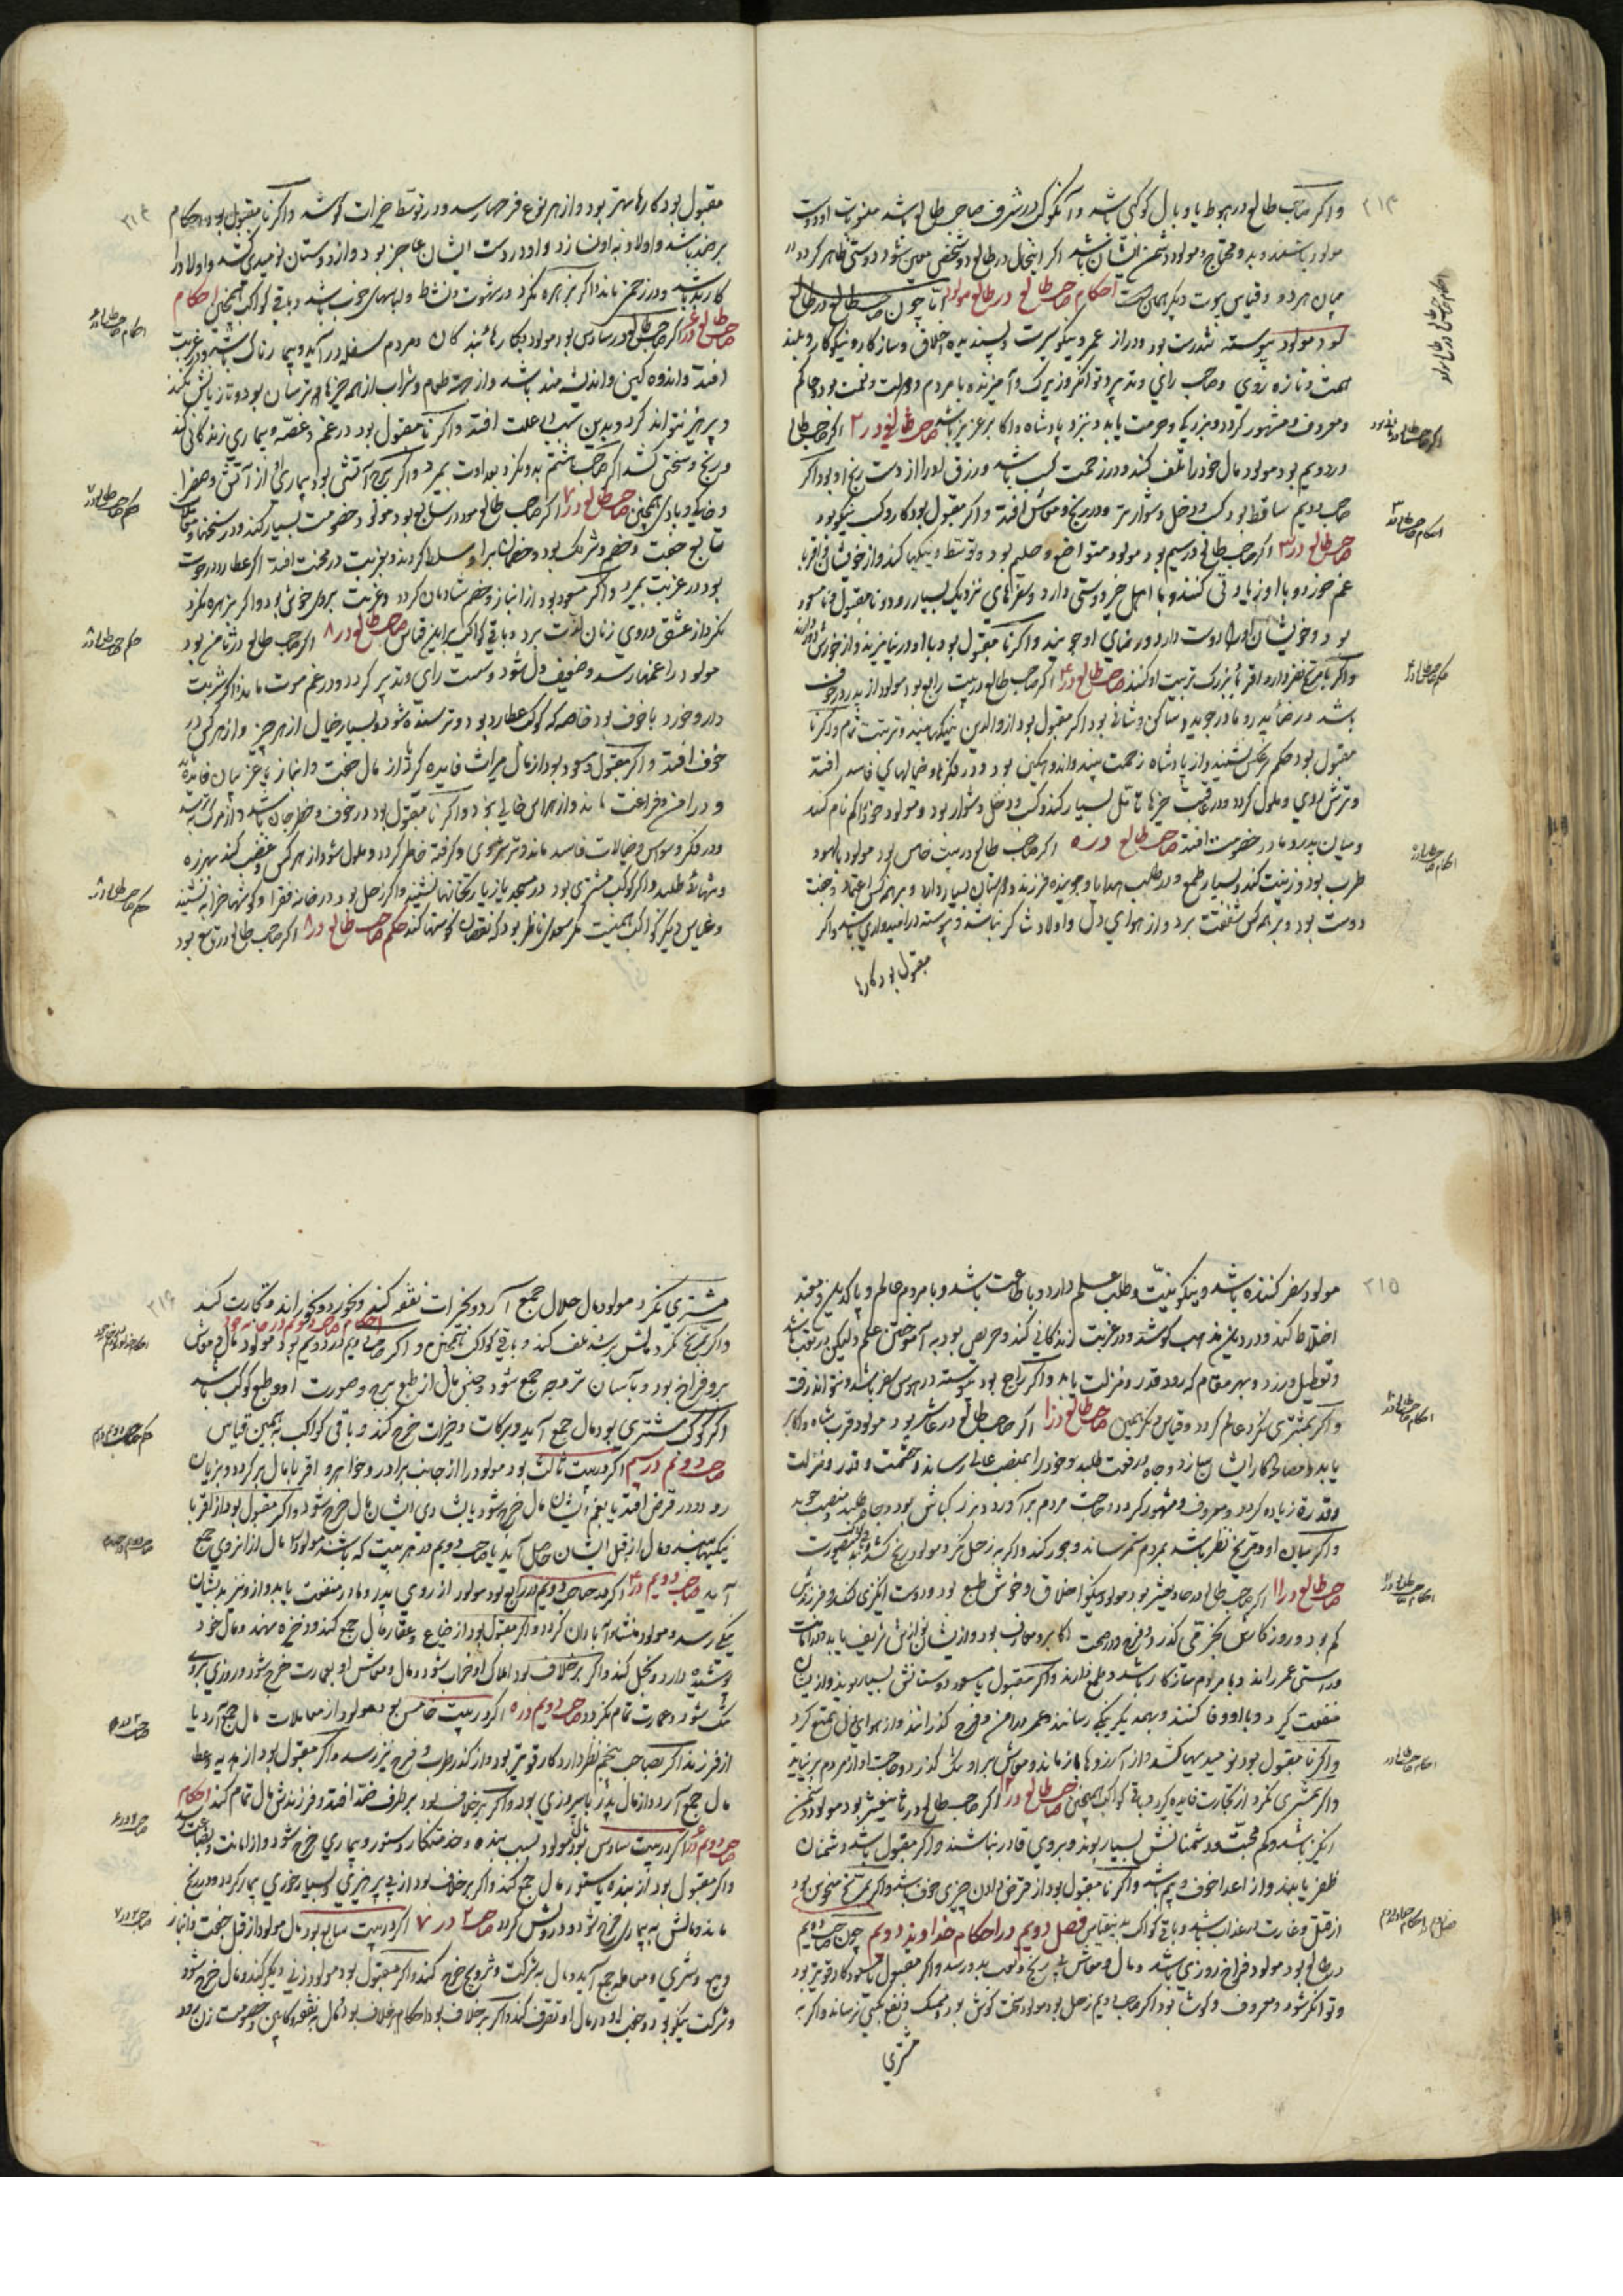 ۲۱۳
واکر صاحب طالع در هبوط یا وبال کوکبی باشد و آن کوکب در شرف صاحب طالع باشد
مولود باشند و بدو محتاج و مولود دشمن ایشان باشد اکر اینحال در طالع دو شخص معین شود دوستی ظاهر کردد
میان هر دو و قیاس بیوت دیکر همین است احکام صاحب طالع در طالع مولود تا چون صاحب طالع در طالع
بود مولود پیوسته تندرست بود و دراز عمر و نیکو سیرت و پسندیده اخلاق و سازکار و نیکوکار و بلند
همت و تازه روی و صاحب رای و تدبیر و توانکر و زیرک و آمیزنده با مردم و دولت و نعمت بود و حاکم
و معروف و مشهور کردد و بزرکی و حرمت یابد و بنزد پادشاه و اکابر عزیز باشد صاحب طالع در ۲ اکر صاحب طالع
در دویم بود مولود مال خود را تلف کند و در زحمت کسب باشد و رزق او را از دست رنج او بود اکر
صاحب دویم ساقط بود کسب و دخل دشوارتر و در رنج و معاش افتد و اکر مقبول بود کار و کسب نیکو بود
صاحب طالع در ۳ اکر صاحب طالع در سیم بود مولود متواضع و حلیم بود و توسط و نیکیها کند و از خویشان و اقربا
غم خورد و با او زیادتی کنند و با اهل خیر دوستی دارد و سفرهای نزدیک بسیار رود و تا مقبول
بود و خویشان او را دوست دارد و رضای او جویند و اکر نا مقبول بود با او در نیامیزند و از خویش
واکر با مریخ نظر دارد اقربای بزرک تربیت او کنند صاحب طالع در ۴ اکر صاحب طالع در بیت رابع بود مولود از پدر
باشد و رضای پدر و مادر جوید و ساکن و شانی بود اکر مقبول بود از والدین نیکیها بیند و تربیت تمام واکر نا
مقبول بود حکم بعکس نشیند و از پادشاه زحمت بیند و اندوهکین بود و در فکرها و خیالهای فاسد افتد
و ترش روی و ملول کردد و در عاقبت چیزها تامل بسیار کند و کسب و دخل دشوار بود و مولود
و میان پدر و مادر خصومت افتد صاحب طالع در ۵ اکر صاحب طالع در بیت خامس بود مولود با لهو و
طرب بود و زینت کند و بسیار طمع و در طلب هدایا و جوینده فرزند و دوستان بسیار دارد و بر همه کس اعتماد و جفت
دوست بود و بر همه کس شفقت برد و از هوای دل و اولاد شاکر نباشد و پیوسته در امیدواری باشد و اکر
مقبول بود کارها
احکام صاحب طالع در طالع مولود
احکام صاحب طالع در ۳
حکم صاحب طالع در ۴
احکام صاحب طالع در ۵
۲۱۴
مقبول بود کارها بهتر بود و از هر نوع فرحها رسد و در توسط خیرات کوشد و اکر نا مقبول بود احکام
بر ضد باشد و اولاد به او نسازد و او در دست ایشان عاجز بود و از دوستان نومیدی کشد و اولاد را
کاره باشد و در زحمت ماند اکر بزهره نکرد در شهوت و نشاط و لباسهای خوب باشد و باقی کواکب همچنین احکام
صاحب طالع در ۶ اکر صاحب طالع در سادس بود مولود بکارهای بندکان و مردم سفله در آید و بیمارناک باشد و در غربت
افتد و اندوهکین و اندیشه مند باشد و از جهة طعام و شراب از همه چیزها ترسان بود
و پرهیز نتواند کرد و بدین سبب در علت افتد و اکر نا مقبول بود در غم و غصه و بیماری زندکانی کند
و رنج و سختی کشد اکر صاحب هشتم بدو نکرد بعداوت بمیرد و اکر برج آتشی بود بیماری او از آتش و صفرا
و خاکی و بادی همچنین صاحب طالع در ۷ اکر صاحب طالع مولود در سابع بود مولود خصومت بسیار کند و در سخنها
تابع جفت و خصم و شریک بود و خصمان بر او مسلط کردند و بغربت در محنت افتد اکر عطارد در حوت
بود در غربت بمیرد و اکر مسعود بود از انباز و خصم شادمان کردد و غربت بر او خوش بود و اکر بزهره نکرد
نکرد از عشق و روی زنان لذت برد و باقی کواکب بر این قیاس صاحب طالع در ۸ اکر صاحب طالع در ثامن بود
مولود را غمها رسد و ضعیف دل شود و سست رای و تدبیر کردد و در غم موت ماند
دارو خورد با خوف بود خاصه که کوکب عطارد بود و ترسنده شود و بسیار خیال از هر چیز و از هر کس در
خوف افتد و اکر مقبول و مسعود بود از مال میراث فایده کیرد یا از مال جفت و انباز یا غریبان فایده
و در امن و فراغت ماند و از هراس خالی بود و اکر نا مقبول بود در خوف و خطر جان باشد و از مرک
و در فکر و وسواس و خیالات فاسد ماند و ترش روی و کرفته خاطر کردد و ملول شود از هر کس و غضب کند بهرزه
و تنهائی طلبد و اکر کوکب مشتری بود در مسجد یا زیارتخانها نشیند و اکر زحل بود در خانه فقرا و کوشها خرابه نشیند
و قیاس دیکر کواکب همینست مکر سعدی ناظر بود حکم صاحب طالع در ۹ اکر صاحب طالع در تاسع بود
احکام صاحب طالع در ۶
حکم صاحب طالع در ۷
حکم صاحب طالع در ۸
حکم صاحب طالع در ۹
۲۱۵
مولود سفر کننده باشد و نیکو نیت و طلب علم دارد و با طاعت باشد و با مردم عالم و پاک دین و معتبر
اختلاط کند و در دین و مذهب کوشد و در غربت زندکانی کند و حریص بود به آموختن علم و لیکن در تعب باشد
و تعطیل ورزد و بهر مقام که رود قدر و منزلت یابد و اکر راجع بود پیوسته در هوس سفر باشد و نتواند رفت
و اکر بمشتری نکرد عالم کردد و قیاس دیکر همین صاحب طالع در ۱۰ اکر صاحب طالع در عاشر بود مولود قرب شاه و اکابر
یابد و مصالح کار ایشان سازد و جاه و رفعت طلبد و خود را بمنصب عالی رساند و حشمت و قدر و منزلت
و قدرة زیاده کردد و معروف و مشهور کردد و حاجت مردم برآورد و بزرک باش بود و جاه طلبد و منصب جوید
و اکر میان او و مریخ نظر باشد بمردم ستم رساند و جور کند و اکر بزحل نکرد مولود رنج کشد
صاحب طالع در ۱۱ اکر صاحب طالع در حادیعشر بود مولود نیکو اخلاق و خوش طبع بود و دوست انکیزی کند و فرزندش
کم بود و روزکارش بخرمی کذرد و فرح و در صحبت اکابر و معارف بود و از ایشان نوازش و تشریف یابد
و راستی عمر راند و با مردم سازکار باشد و طمع ندارند و اکر مقبول یا مسعود دوستانش بسیار بوند و از ایشان
منفعت کیرد و با او وفا کنند و بهمدیکر نیکی رسانند و عمر در امن و فرح کذرانند و از هوای دل تمتع کیرد
و اکر نا مقبول بود نومیدیها کشد و از آرزوها باز ماند و معاش بر او تنک کذرد و حاجت او از مردم بر نیاید
و اکر بمشتری نکرد از تجارت فایده کیرد و باقی کواکب همچنین صاحب طالع در ۱۲ اکر صاحب طالع در ثانیعشر بود مولود دشمن
انکیز باشد و کم محبت و دشمنانش بسیار بوند و بر وی قادر نباشند و اکر مقبول باشد دشمنان
ظفر یابند و از اعدا خوف و بیم باشد و اکر نا مقبول بود از قرض دادن چیزی خوف باشد و اکر مریخ منحوس بود
از قتل و غارت در عذاب باشد و باقی کواکب بدین قیاس فصل دویم در احکام خداوند دویم چون صاحب دویم
در طالع بود مولود فراخ روزی باشد و مال و معاش بی رنج و تعب بدو رسد و اکر مقبول یا مسعود کار قویتر بود
و توانکر شود و معروف و کوشا بود اکر صاحب دویم زحل بود مولود سخت کوش بود و ممسک و نفع بکسی نرساند و اکر به
مشتری
احکام صاحب طالع در ۱۰
احکام صاحب طالع در ۱۱
احکام صاحب طالع در
فصل دوم در احکام صاحب دوم
۲۱۶
مشتری نکرد مولود مال حلال جمع آرد و بخیرات نفقه کند و بخورد و بخوراند و تجارت کند
احکام صاحب دویم در خانه دو
و اکر بمریخ نکرد مالش برشوه تلف کند و باقی کواکب همچنین و اکر صاحب دویم در دویم بود مولود مال و معاش
برو فراخ بود و بآسان تر وجه جمع شود و جنس مال از طبع برج و صورت او و طبع کوکب باشد
اکر کوکب مشتری بود مال جمع آید و برکات و خیرات خرج کند و باقی کواکب بهمین قیاس
صاحب دویم در سیم اکر در بیت ثالث بود مولود را از جانب برادر و خواهر و اقربا مال بر کردد و بزیان
رود و در قرض افتد یا بغم ایشان مال خرج شود یا بشادی ایشان مال خرج شود و اکر مقبول بود از اقربا
نیکیها بیند و مال از قبل ایشان حاصل آید یا صاحب دویم در هر بیت که باشد مولود را مال از آنروی جمع
آید صاحب دویم در ۴ اکر صاحب دویم در رابع بود مولود از روی پدر و مادر منفعت یابد و از او نیز بدیشان
نیکی رسد و مولود منشاء آبادان کردد و اکر مقبول بود از ضیاع و عقار مال جمع کند و ذخیره نهد و مال خود
پوشیده دارد و بخل کند و اکر بر خلاف بود املاک او خراب شود و مال و معاش او بعمارت خرج شود و روزی بر وی
تنک شود و عمارت تمام نکردد صاحب دویم در ۵ اکر در بیت خامس بود مولود از معاملات مال جمع آرد یا
از فرزند اکر بصاحب پنجم نظر دارد کار قویتر بود و از کذر طرب و فرح نیز رسد و اکر مقبول بود از هدیه و عطا
مال جمع آرد و از مال پدر با بهروزی بود و اکر بر خلاف بود بر طرف ضد افتد و فرزندش مال تمام کند احکام
صاحب دویم در ۶ اکر در بیت سادس بود مولود بسبب بنده و خدمتکار و ستور و بیماری خرج شود و از امانت
و اکر مقبول بود از بنده یا ستور مال جمع کند و اکر بر خلاف بود از بی پرهیزی و بسیار خوری بیمار کردد و در رنج
ماند و مالش به بیماری خرج شود و درویش کردد صاحب ۲ در ۷ اکر در بیت سابع بود مال مولود از قبل جفت و انباز
و بیع و شری و معامله جمع آید و مال به شرکت و تزویج خرج کند و اکر مقبول بود مولود زنی دیکر کند و مال خرج شود
و شرکت نیکو بود و جفت او در مال او تصرف کند و اکر بر خلاف بود احکام بخلاف بود و مال به نفقه و کابین و خصومت زن برود
صاحب ۲ در ۵
صاحب ۲ در ۶
صاحب ۲ در ۷